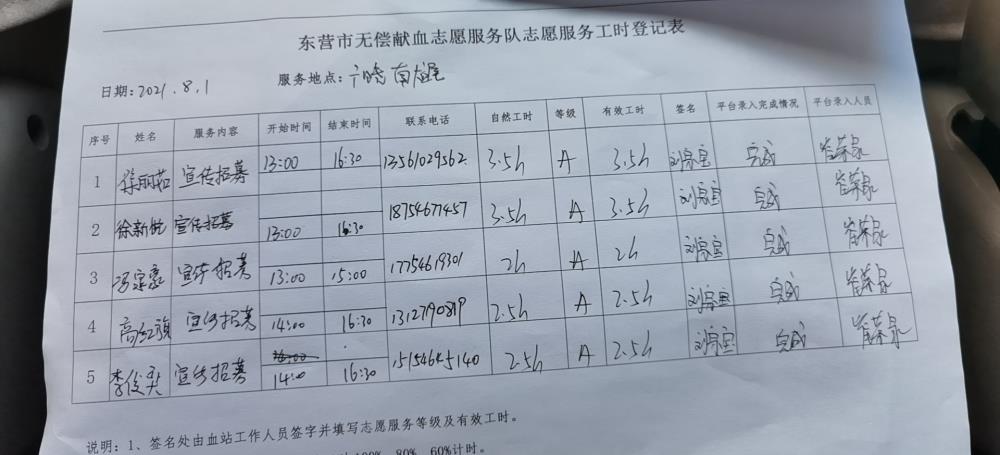 东营市无偿献血志愿服务队志愿服务工时登记表
日期：2021.8.1 服务地点：
序号 姓名 服务内容 开始时间 结束时间 联系电话 自然工时 等级 有效工时 签名 平台录入完成情况 平台录入人员
1 徐丽茹 宣传招募 13:00 16:30 13561029562 3.5h A 3.5h 完成
2 徐新 宣传招募 13:00 16:30 18754677457 3.5h A 3.5h 完成
3 宣传招募 13:00 15:00 17754619301 2h A 2h 完成
4 高红旗 宣传招募 14:00 16:30 13127190819 2.5h A 2.5h 完成
5 李俊 宣传招募 14:00 16:30 2.5h A 2.5h 完成
说明：1、签名处由血站工作人员签字并填写志愿服务等级及有效工时。
100%、80%、60%计时。